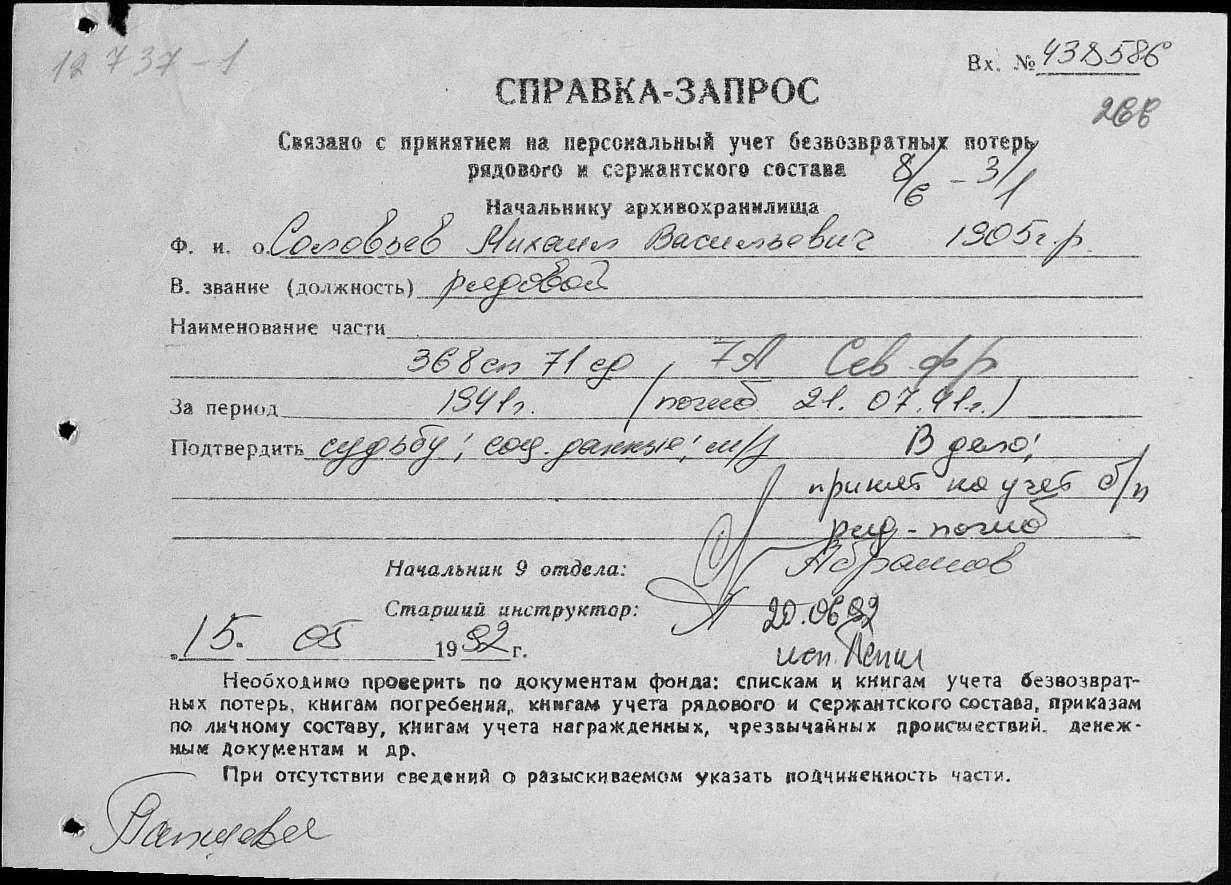 12737-1
Вх. № 438586
СПРАВКА-ЗАПРОС
266
Связано с принятием на персональный учет безвозвратных потерь
рядового и сержантского состава
8/6 - 3/1
Начальнику архивохранилища
Ф. и. о. Соловьев Михаил Васильевич 1905 г.р.
В. звание (должность) рядовой
Наименование части
368 сп 71 сд, 7А Сев. фр
За период 1941г. (погиб 21.07.41г.)
Подтвердить судьбу; соц. данные; м/ж В дело;
принят на учет б/п
ряд-погиб
Начальник 9 отдела: Абрамов
Старший инструктор: 20.06.92
15. 05 1992 г. исп.
Необходимо проверить по документам фонда: спискам и книгам учета безвозврат-
ных потерь, книгам погребения, книгам учета рядового и сержантского состава, приказам
по личному составу, книгам учета награжденных, чрезвычайных происшествий. денеж-
ным документам и др.
При отсутствии сведений о разыскиваемом указать подчиненность части.